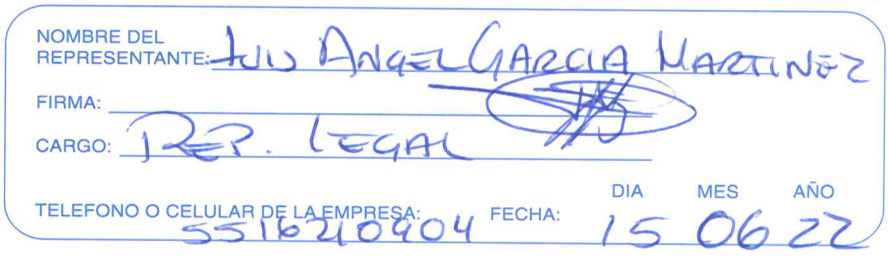 NOMBRE DEL
REPRESENTANTE: LUIS ANGEL GARCIA MARTINEZ
FIRMA:
CARGO: REP. LEGAL
DIA MES AÑO
TELEFONO O CELULAR DE LA EMPRESA: 5516210904 FECHA: 15 06 22